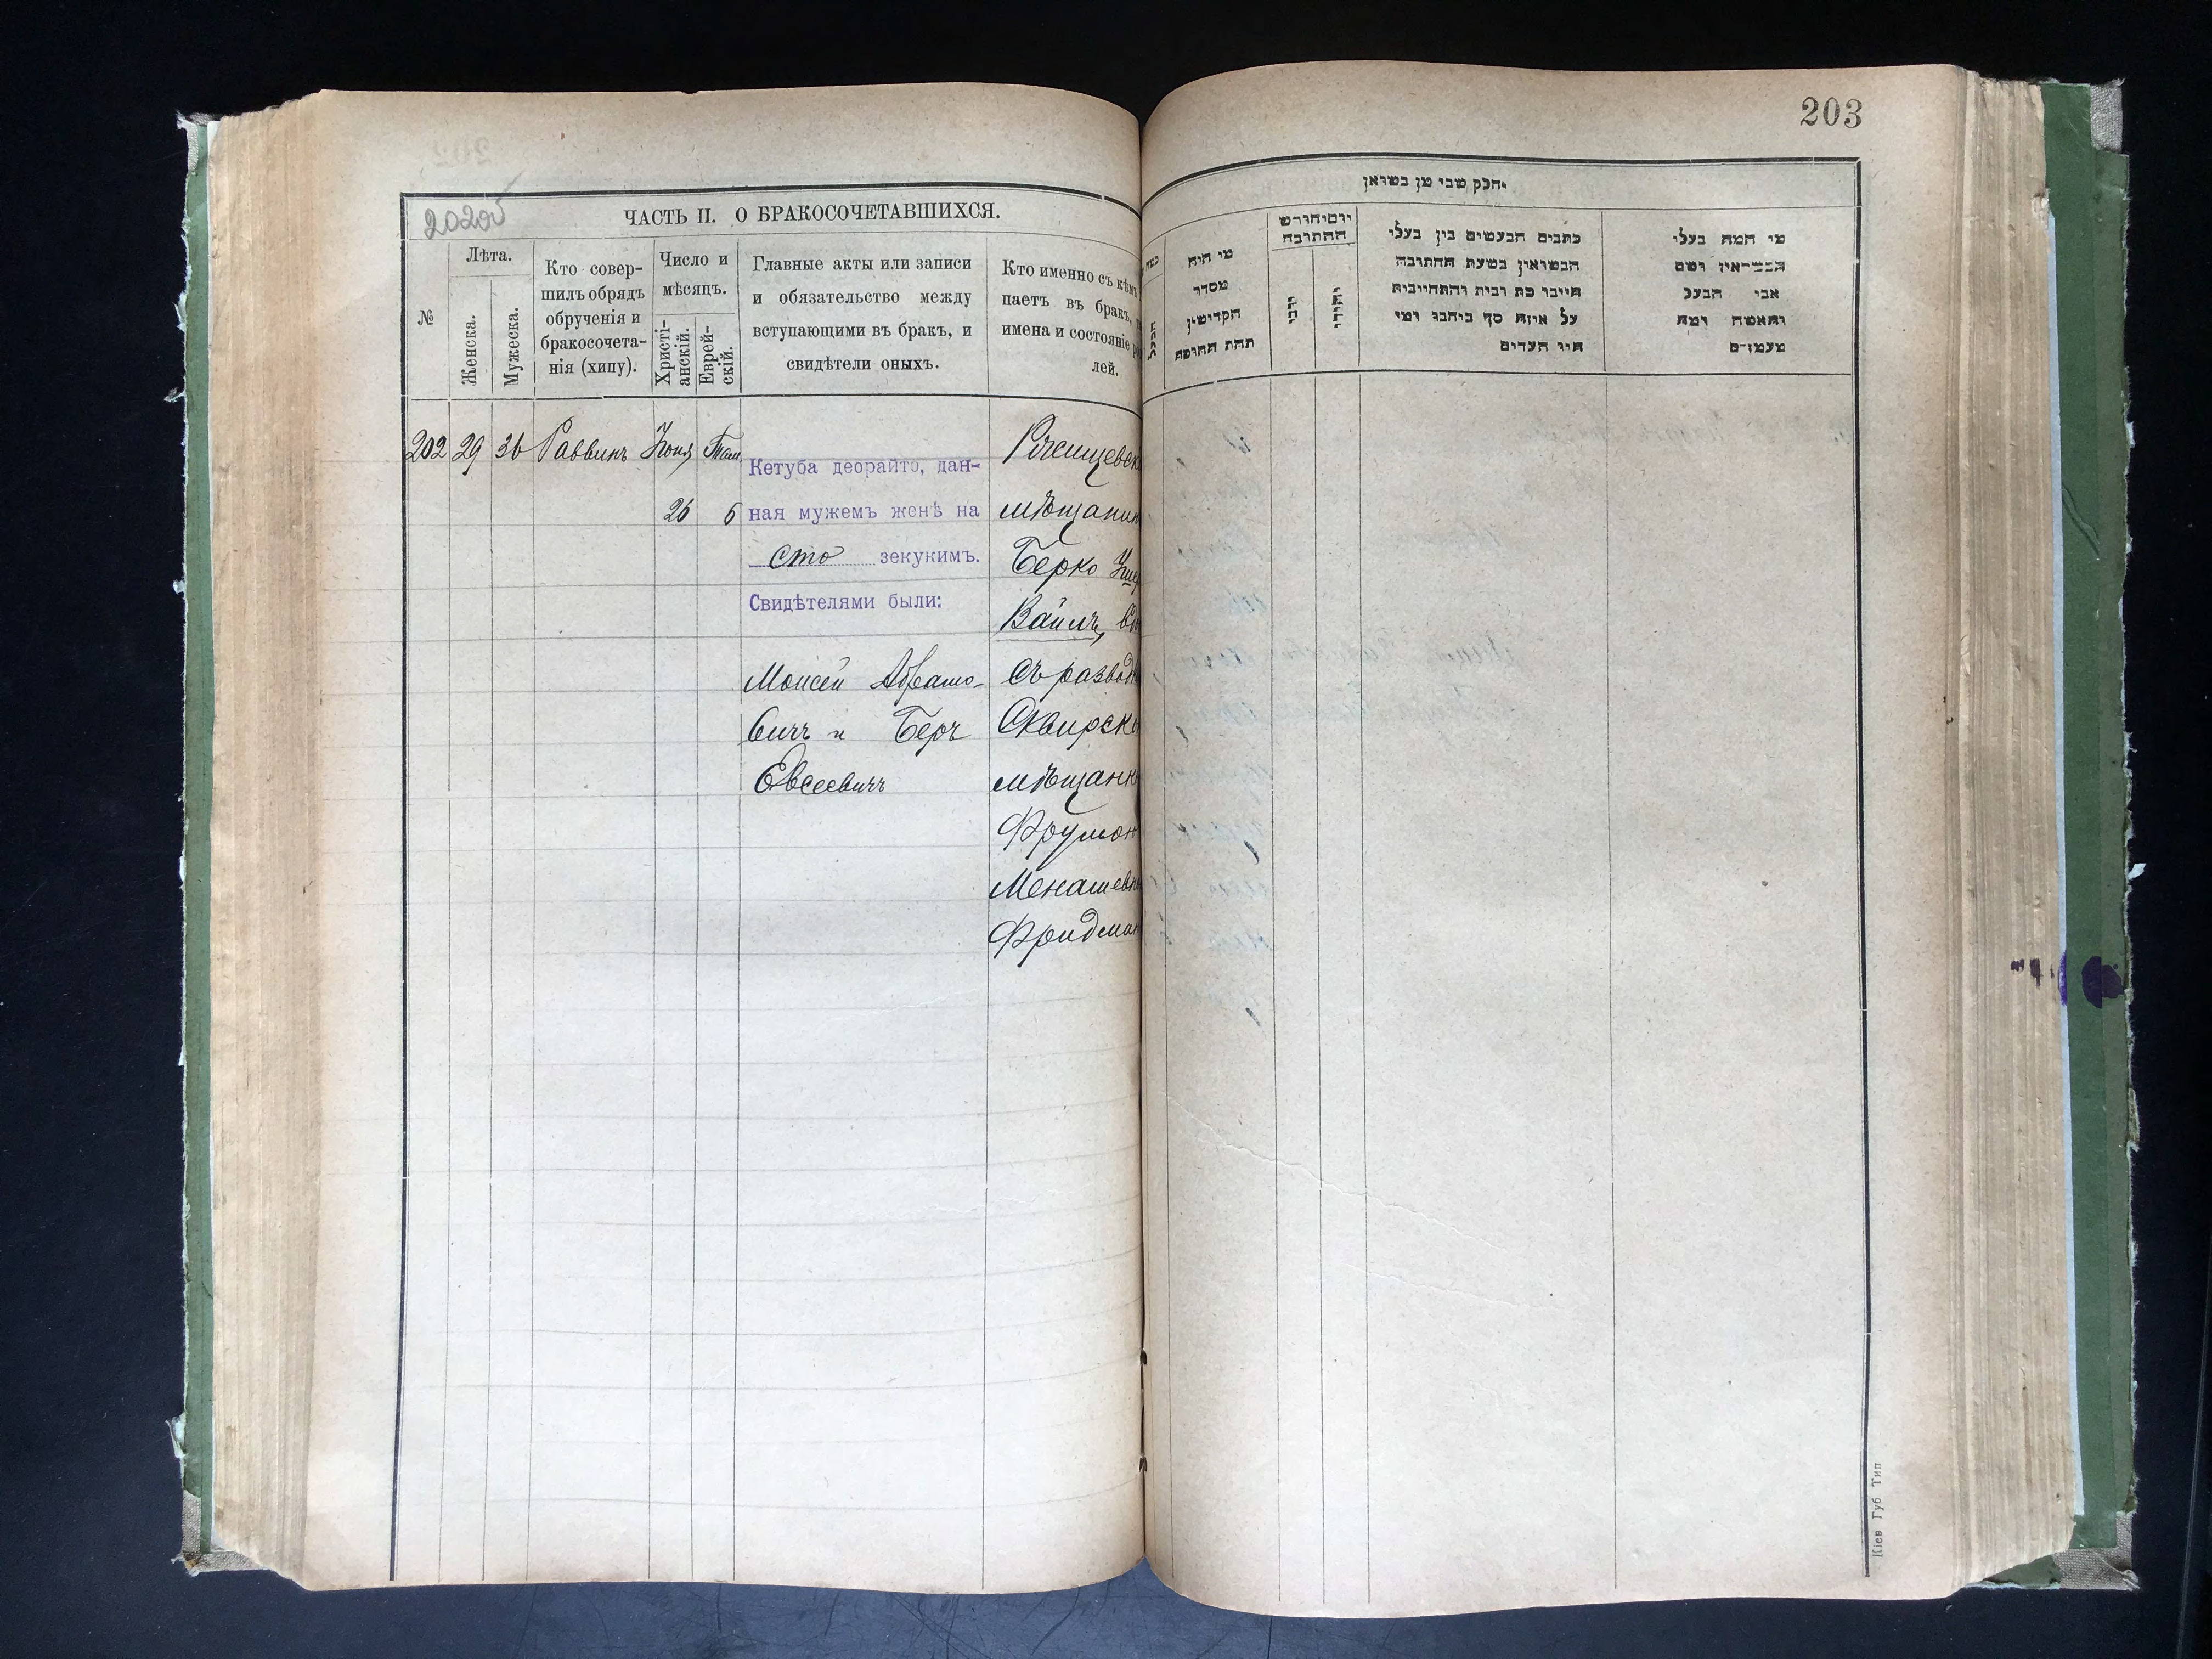 203
202об
ЧАСТЬ II. О БРАКОСОЧЕТАВШИХСЯ.
№
Лѣта.
Женска.
Мужеска.
Кто совер-
шилъ обрядъ
обрученія и
бракосочета-
нія (хипу).
Число и
мѣсяцъ.
Христі-
анскій.
Еврей-
скій.
Главные акты или записи
и обязательство между
вступающими въ бракъ, и
свидѣтели оныхъ.
Кто именно съ кѣмъ
паетъ въ бракъ,
имена и состояніе
лей.
202 29 36 Раввинъ Іюня Там.
26 6
Кетуба деорайто, дан-
ная мужемъ женѣ на
сто зекукимъ.
Свидѣтелями были:
Моисей Абрамо-
вичъ и Беръ
Евсеевичъ
мѣщанин
Берко
Вайлъ,
съ развод
Сквирско
мѣщанк
Фрумой
Менашевн
Фридман
חלק שני מן
מי היה
מסדר
הקדישין
תחת החופה
יום וחורש
ההתובה
כתבים הנעשים בין בעלי
הנשואין בשעת ההתובה
על איזה סך ביחבו ומי
היו העדים
מי המה בעלי
הנשואין ושם
אבי הבעל
והאשה ומה
מעמדם
Кіев Губ Тип